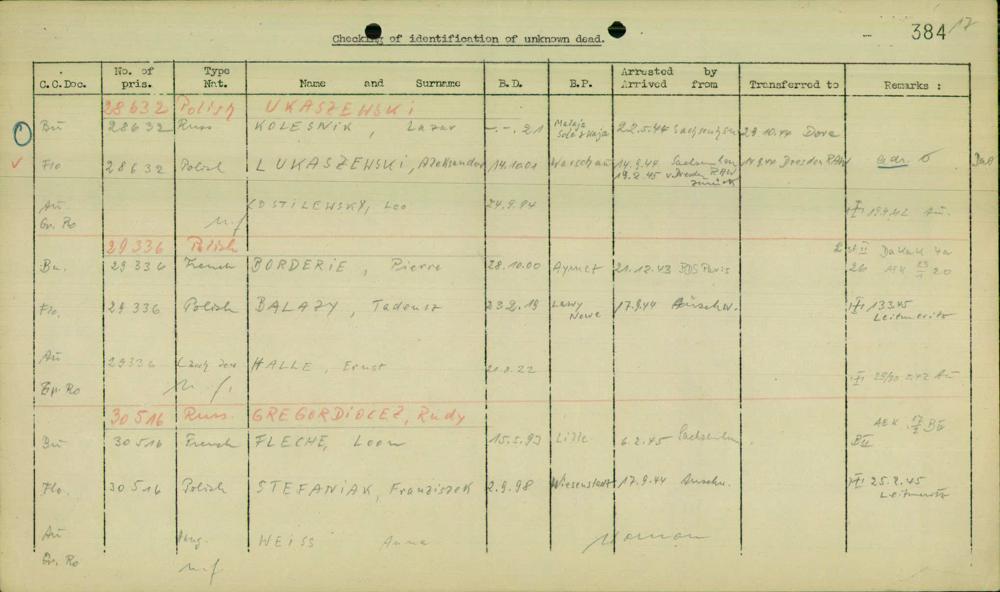 Checking of identification of unknown dead. - 384 17
C.C.Doc. No. of pris. Type Nat. Name and Surname B.D. B.P. Arrested by Arrived from Transferred to Remarks :
28632 Polish UKASZEWSKI
Bu 28632 Russ KOLESNIK, Lazar -.-.21 22.5.44 Sachsenhsn 29.10.44 Dora
Flo 28632 Polish LUKASZEWSKI, Aleksander 14.10.01 Warschau 14.9.44 Sachsenhsn Dresden RAW
19.2.45 v. Dresden RAW zurück
Au LO STILEWSKY, Leo 24.9.94 Au.
Gr. Ro n.f.
29336 Polish
Bu. 29336 French BORDERIE, Pierre 28.10.00 Aymet 21.12.43 BDS Paris 26 20
Flo. 29336 Polish BALAZY, Tadeusz 23.2.19 Nowe 17.9.44 Auschw. 13.3.45 Leitmeritz
Au 29336 HALLE, Ernst 22 Au
Gr. Ro n.f.
30516 Russ. GREGORDIOCEZ, Rudy
Bu 30516 French FLECHE, Leon 15.5.93 Lille 6.2.45 Sachsenhsn BII
Flo. 30516 Polish STEFANIAK, Franziszek 2.9.98 Wiesenstadt 17.9.44 Auschw. 25.2.45 Leitmeritz
Au ung. WEISS Anna
Gr. Ro n.f.